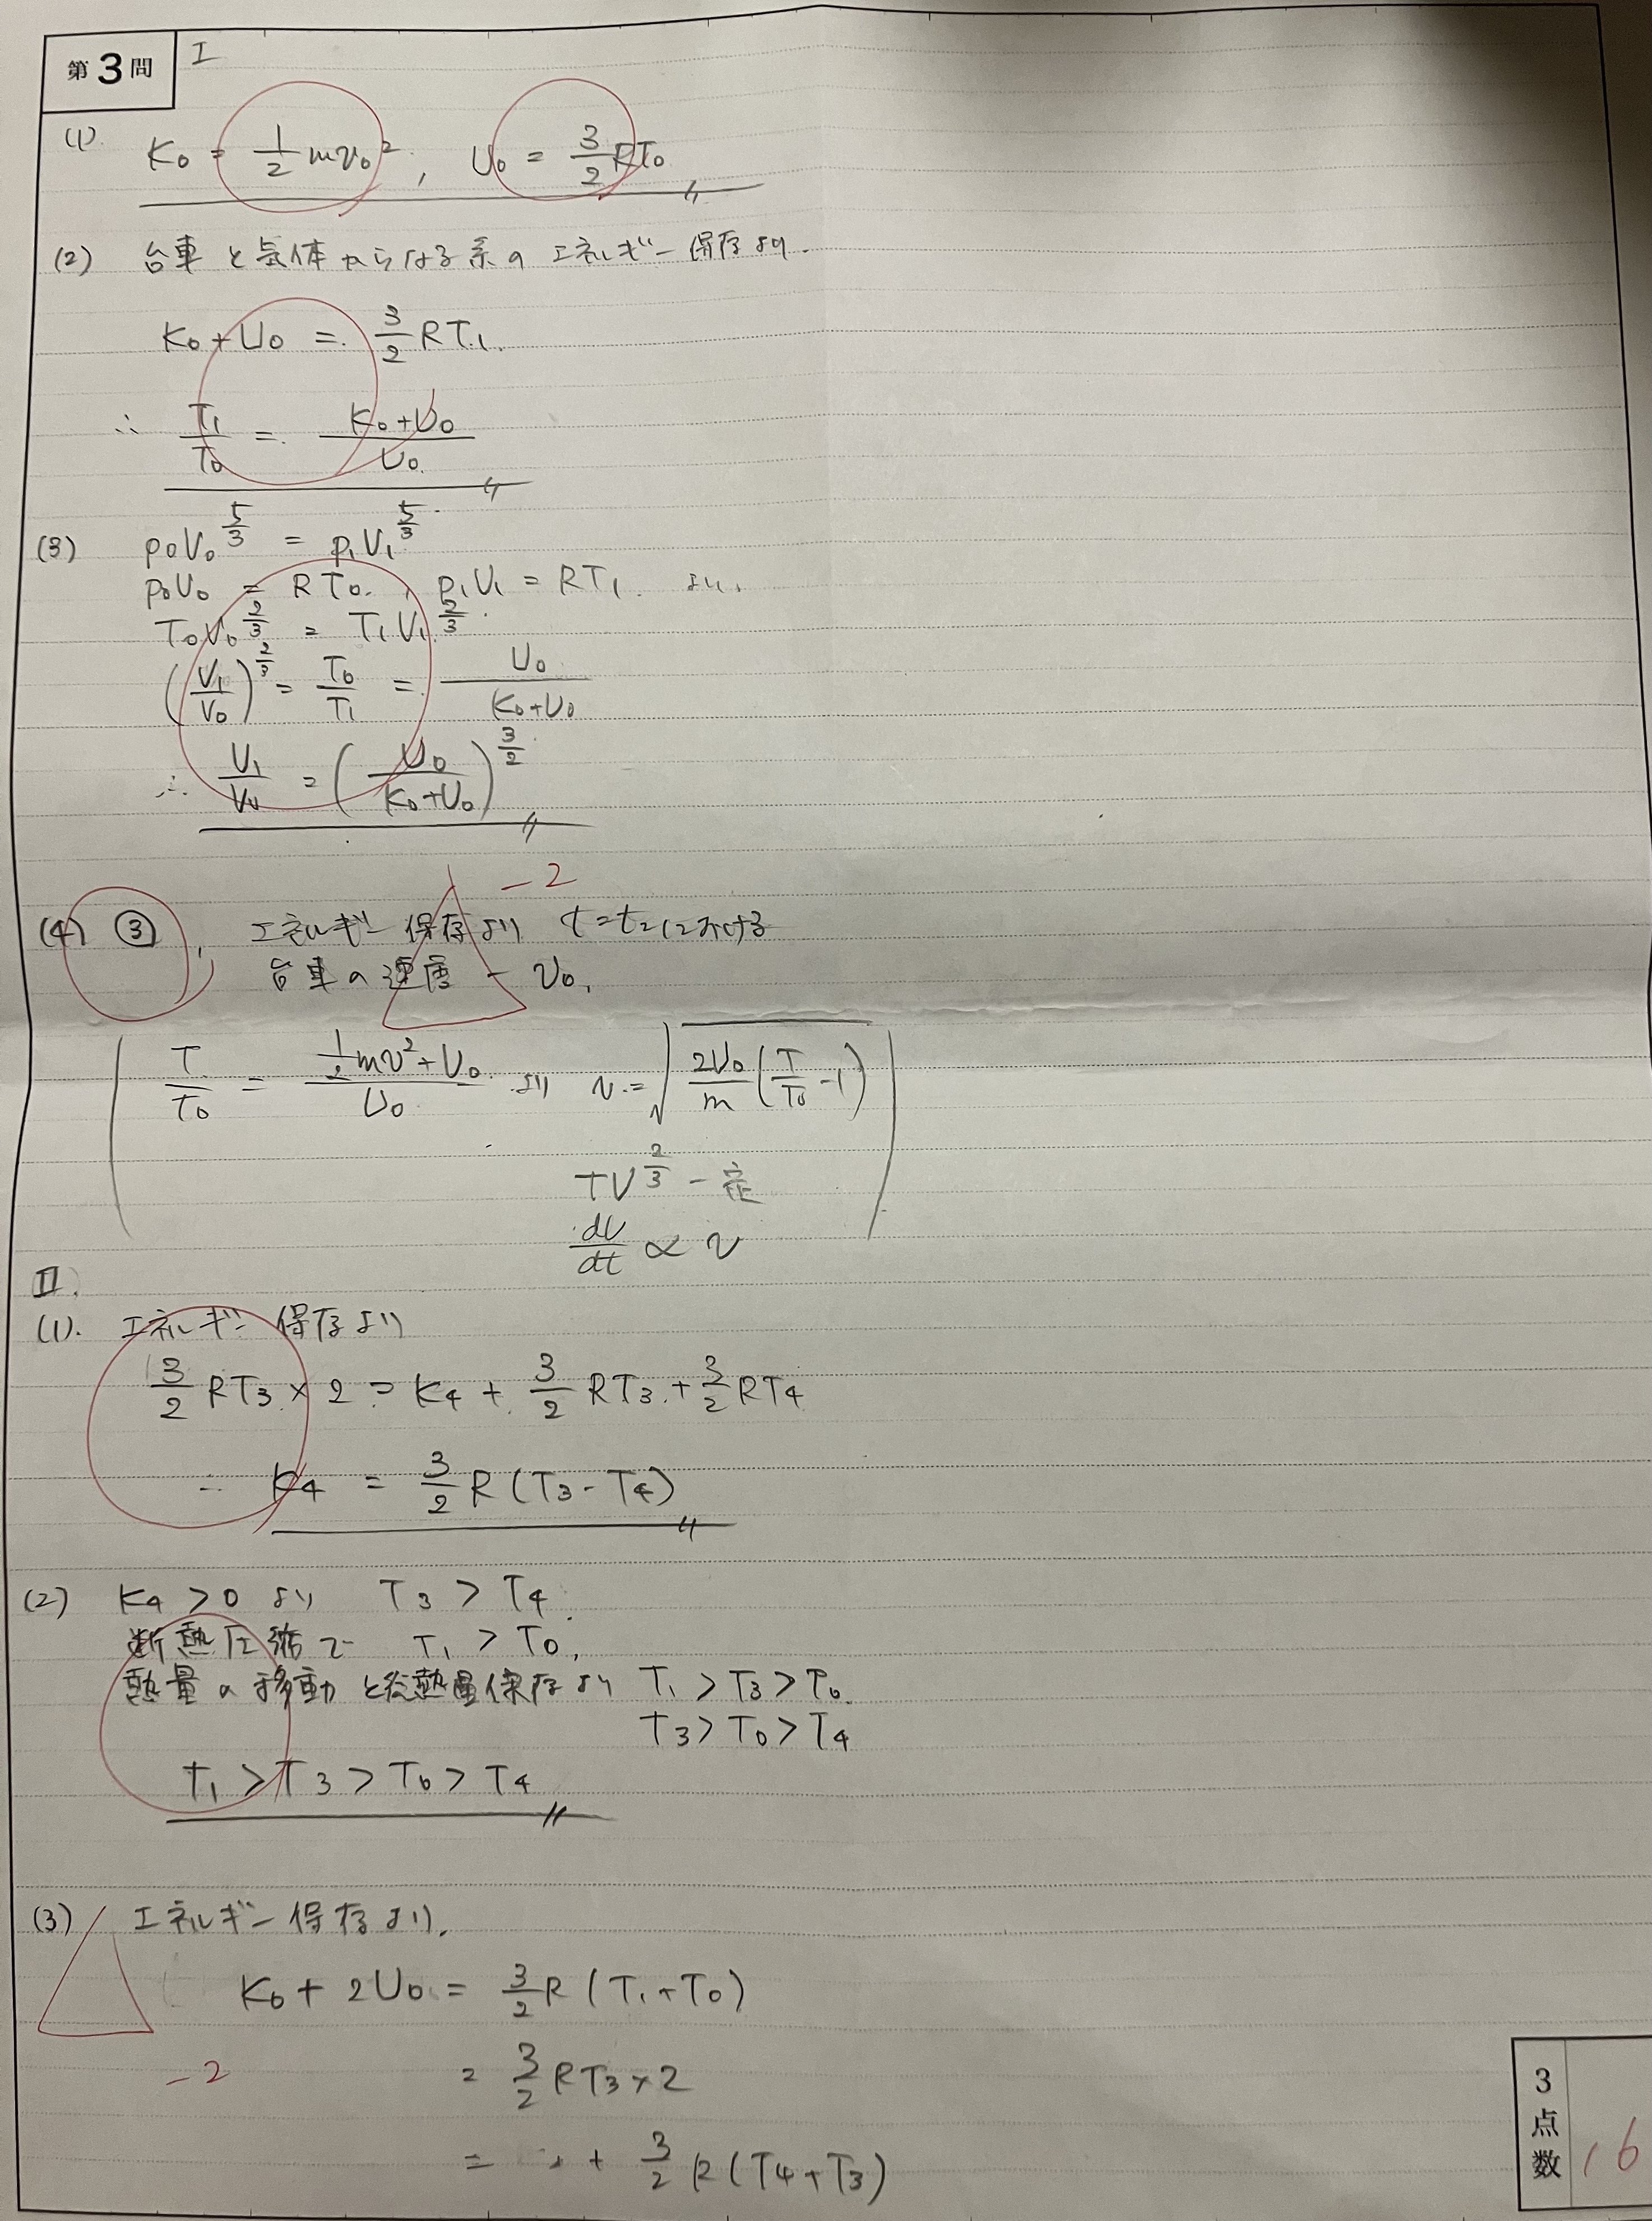 第3問 I
(1). K₀ = 1/2 mv₀², U₀ = 3/2 RT₀
(2) 台車と気体からなる系のエネルギー保存より.
K₀+U₀ = 3/2 RT₁.
∴ T₁/T₀ = (K₀+U₀)/U₀.
(3) p₀V₀^(5/3) = p₁V₁^(5/3).
p₀V₀ = RT₀. , p₁V₁ = RT₁. より.
T₀V₀^(2/3) = T₁V₁^(2/3).
(V₁/V₀)^(2/3) = T₀/T₁ = U₀/(K₀+U₀)
∴ V₁/V₀ = (U₀/(K₀+U₀))^(3/2)
-2
(4) ③, エネルギー保存より t=t₂における
台車の速度 - v₀,
T/T₀ = (1/2 mv²+U₀)/U₀ より v = √(2U₀/m (T/T₀ -1))
TV^(2/3) 一定
dV/dt ∝ v
II.
(1). エネルギー保存より
3/2 RT₃ × 2 = K₄ + 3/2 RT₃ + 3/2 RT₄
∴ K₄ = 3/2 R (T₃ - T₄)
(2) K₄ > 0 より T₃ > T₄.
断熱圧縮で T₁ > T₀,
熱量の移動と総熱量保存より T₁ > T₃ > T₀.
T₃ > T₀ > T₄
T₁ > T₃ > T₀ > T₄
(3) エネルギー保存より.
K₀ + 2U₀ = 3/2 R (T₁+T₀)
-2 = 3/2 RT₃×2
= + 3/2 R (T₄+T₃)
3点数 16